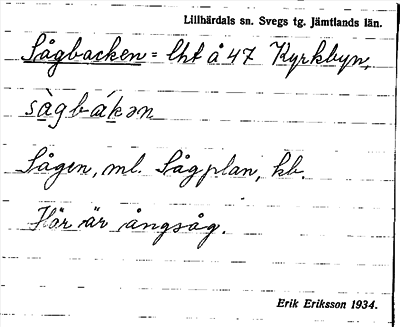 Lillhärdals sn. Svegs tg. Jämtlands län.
Sågbacken = lht å 47 Kyrkbyn,
sàgbákən
Sågen, ml. Sågplan, kb.
Här är ångsåg.
Erik Eriksson 1934.